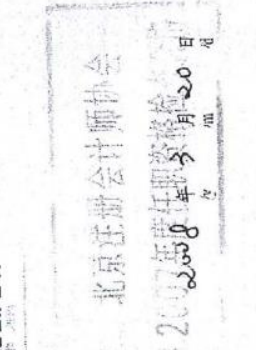 北京注册会计师协会
2007年度任职资格检
2008年3月20日
y m d